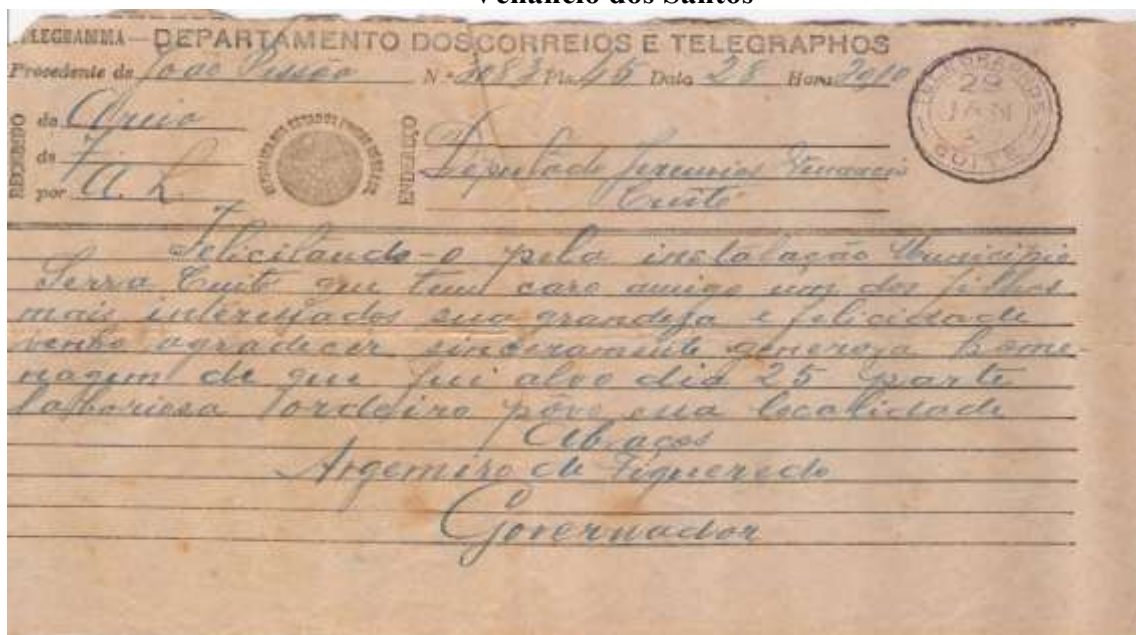 Venâncio dos Santos
TELEGRAMMA — DEPARTAMENTO DOS CORREIOS E TELEGRAPHOS
Procedente de João Pessôa N.º 2083 Pls. 45 Data 28 Hora 2010
RECEBIDO
de Areia
ds
por A. L.
REPUBLICA DOS ESTADOS UNIDOS DO BRASIL
ENDEREÇO
Deputado Jeremias Venancio
Cuité
29
JAN
CUITÉ
Felicitando-o pela instalação Municipio
Serra Cuité que tem caro amigo um dos filhos
mais interessados sua grandesa e felicidade
venho agradecer sinceramente generoza home
nagem de que fui alvo dia 25 parte
laboriosa povo sua localidade
Abraços
Argemiro de Figueredo
Governador